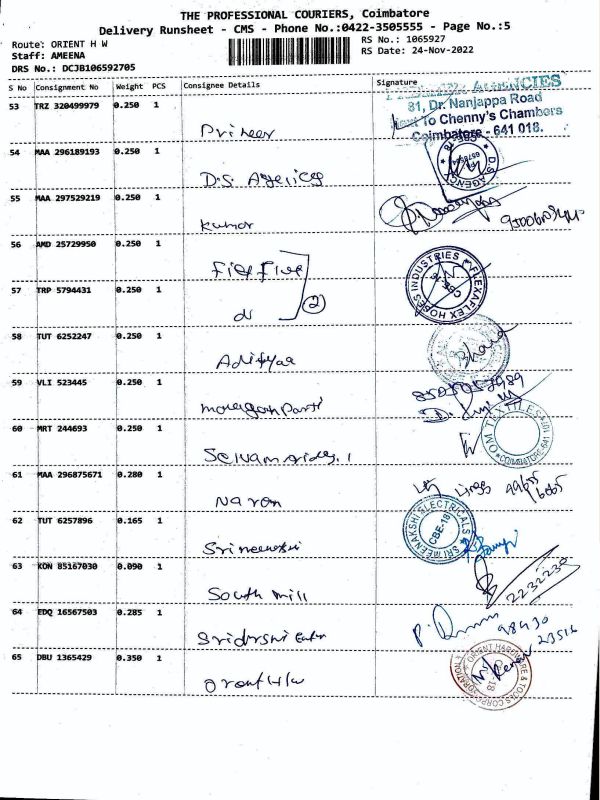 THE PROFESSIONAL COURIERS, Coimbatore
Delivery Runsheet - CMS - Phone No.:0422-3505555 - Page No.:5
Route: ORIENT H W
RS No.: 1065927
Staff: AMEENA
RS Date: 24-Nov-2022
DRS No.: DCJB106592705
S No Consignment No Weight PCS Consignee Details Signature
AGENCIES
81, Dr. Nanjappa Road
Next To Chenny's Chambers
Coimbatore - 641 018.
53 TRZ 320499979 0.250 1
54 MAA 296189193 0.250 1 D.S. Agencies
D.S. AGENCY
55 MAA 297529219 0.250 1 Kumar
56 AMD 25729950 0.250 1 Five Five
FLEXAFLEX HOSES INDUSTRIES
CBE-18
57 TRP 5794431 0.250 1 do 2
58 TUT 6252247 0.250 1 Adityaa
59 VLI 523445 0.250 1
60 MRT 244693 0.250 1
OM TEXTILES
COIMBATORE-641
61 MAA 296875671 0.280 1 Naran
62 TUT 6257896 0.165 1 Srimeenakshi
SRI MEENAKSHI ELECTRICALS
CBE-18
63 KON 85167030 0.090 1 South Mill
2232230
64 EDQ 16567503 0.285 1
98430
23516
65 DBU 1365429 0.350 1 Orient H/W
ORIENT HARDWARE & TOOLS CORPORATION